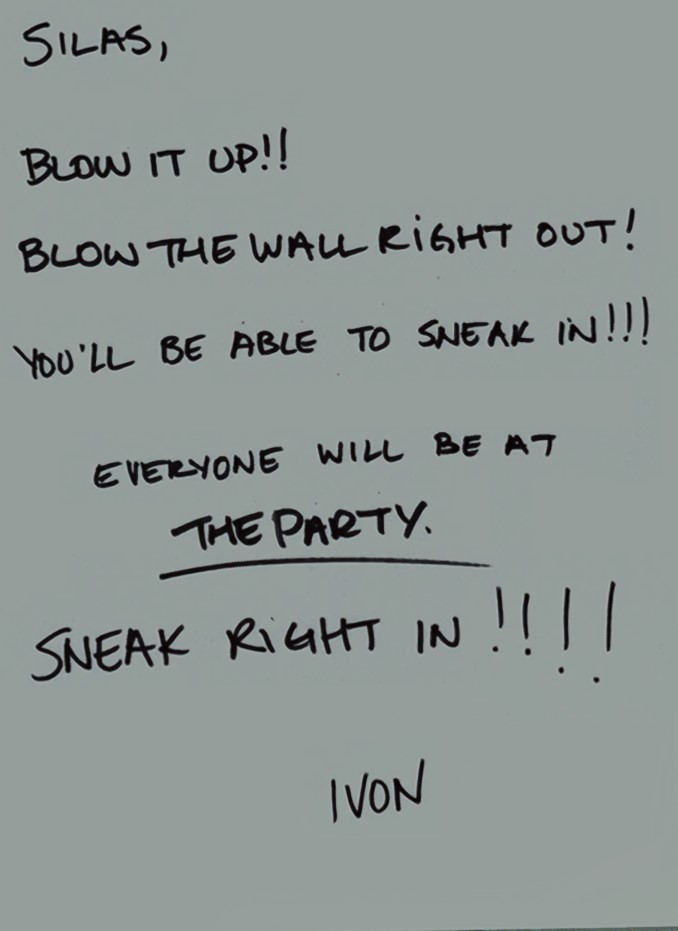 SILAS,
BLOW IT UP!!
BLOW THE WALL RIGHT OUT!
YOU'LL BE ABLE TO SNEAK IN!!!
EVERYONE WILL BE AT
THE PARTY.
SNEAK RIGHT IN!!!!
IVON